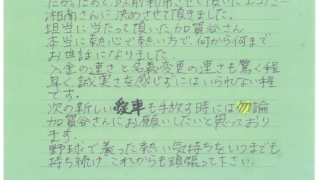 だったので、以前利用させて頂いたユーポス
湘南さんに決めさせて頂きました。
担当に当たって頂いた加賀谷さん
本当に熱心で熱い方で、何から何まで
お世話になりました。
入金の速さと名義変更の速さも驚く程
早く誠実さを感じずにはいられない程
です。
次の新しい愛車も手放す時には勿論
加賀谷さんにお願いしたいと思っており
ます。
野球で養った熱い気持ちをいつまでも
持ち続けこれからも頑張って下さい。